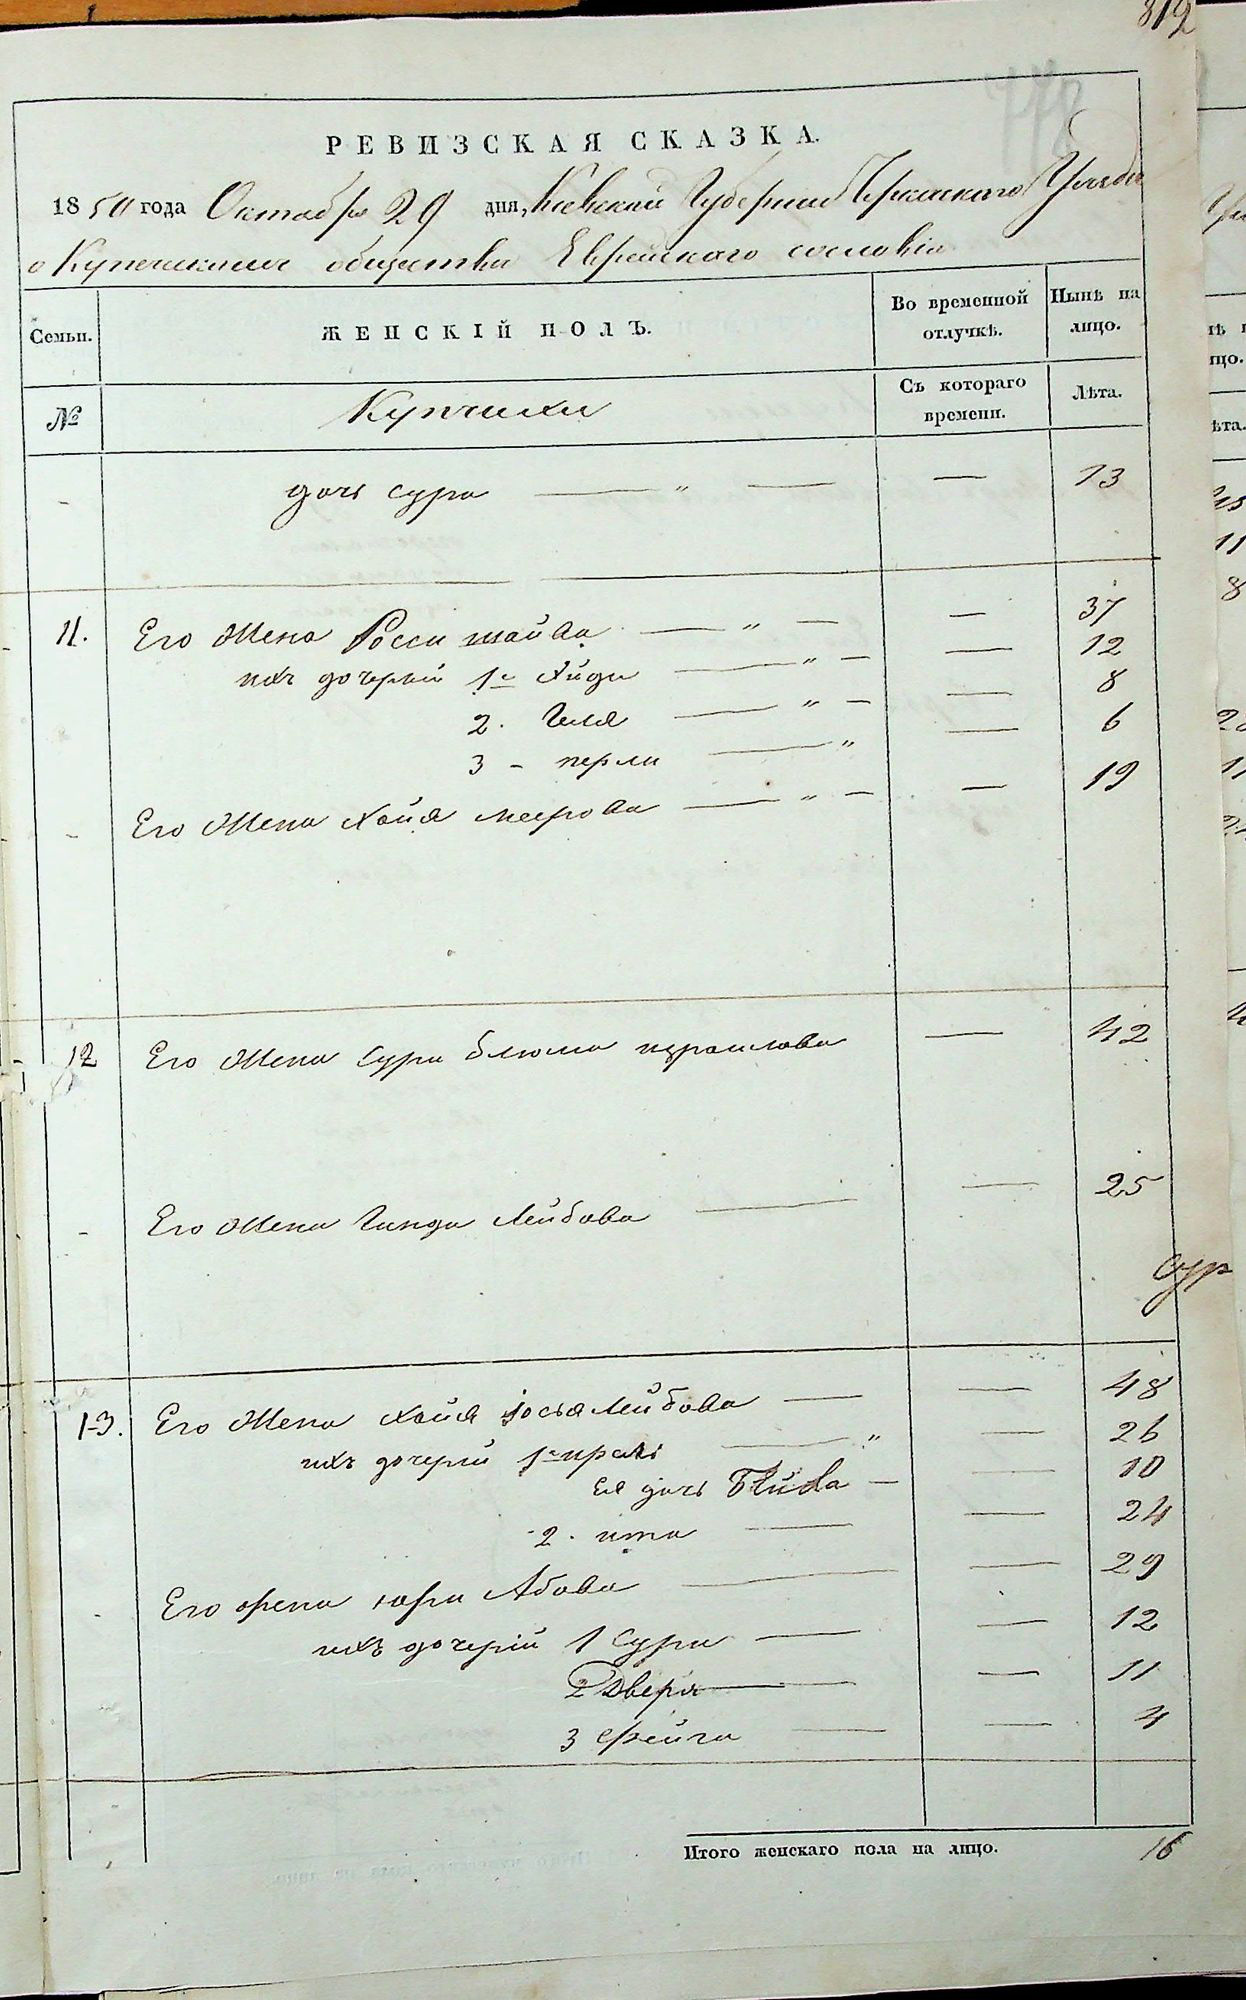 812
778
РЕВИЗСКАЯ СКАЗКА.
1850 года Октября 29 дня, Киевской Губернии Черкаскаго Уезда
о Купеческом обществе Еврейскаго сословія
Семьи.
ЖЕНСКІЙ ПОЛЪ.
Во временной отлучкѣ.
Нынѣ на лицо.
№
Купчихи
Съ котораго времени.
Лѣта.
- дочь сура — " — — 13
11. Его Жена Росси шаива — " — — 37
ихъ дочерьй 1я Хайди — " — — 12
2. Геля — " — — 8
3 - перли — " — 6
- Его Жена Хайя меерова — " — — 19
12 Его Жена сура блюма израилова — 42
- Его Жена Гинда Лейбова — — 25
Сур
13. Его Жена Хайя Йося Лейбова — — 48
ихъ дочерьй 1я — " — 26
Ея дочь — — 10
2. ита — — 24
- Его жена Абова — — 29
ихъ дочерьй 1 Сура — — 12
2 Двера — — 11
3 Фейга — — 4
Итого женскаго пола на лицо. 16